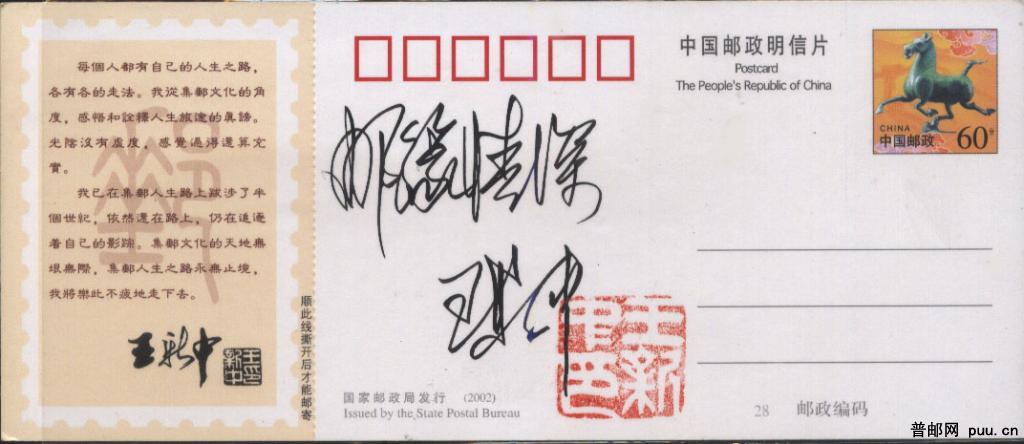 每個人都有自己的人生之路，
各有各的走法。我從集郵文化的角
度，感悟和詮釋人生旅途的真諦。
光陰沒有虛度，感覺過得還算充
實。
我已在集郵人生路上跋涉了半
個世紀，依然還在路上，仍在追逐
着自己的影踪。集郵文化的天地無
垠無際，集郵人生之路永無止境，
我將樂此不疲地走下去。
王新中
王新中印
顺此线撕开后才能邮寄
中国邮政明信片
Postcard
The People's Republic of China
CHINA
中国邮政 60分
邮缘情深
王新中
王新中印
国家邮政局发行 (2002)
Issued by the State Postal Bureau
28 邮政编码
普邮网 puu.cn